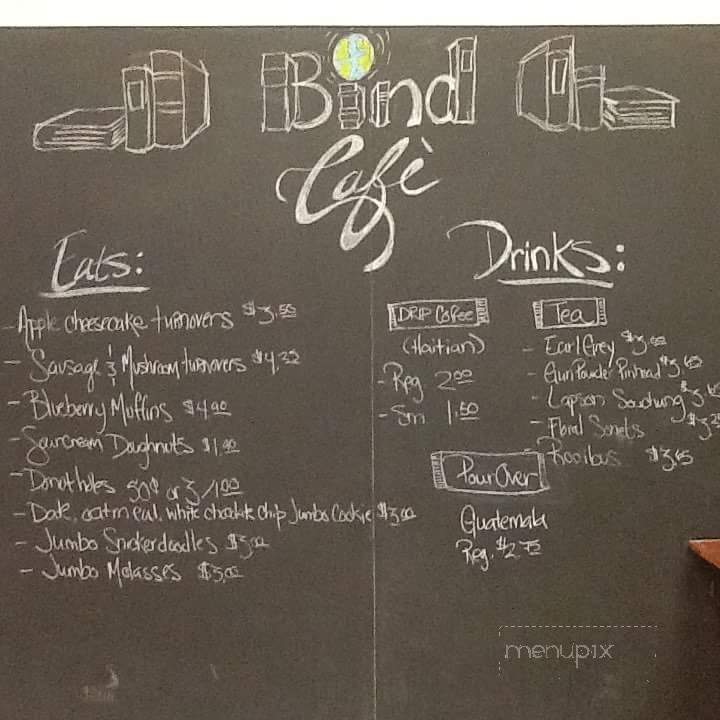 Bind
Cafè
Eats:
- Apple cheesecake turnovers $3.50
- Sausage & Mushroom turnovers $4.25
- Blueberry Muffins $4.00
- Sourcream Doughnuts $1.00
- Donot holes 50¢ or 3/1.00
- Date, oatmeal, white chocolate chip Jumbo Cookie $3.00
- Jumbo Snickerdoodles $3.00
- Jumbo Molasses $3.00
Drinks:
DRIP Coffee
(Haitian)
- Reg 2.00
- Sm 1.50
Pour Over
Guatemala
Reg. $2.75
Tea
- Earl Grey
- GunPowder Pinhead
- Lapsan Souchung
- Floral
- Rooibus
menupix